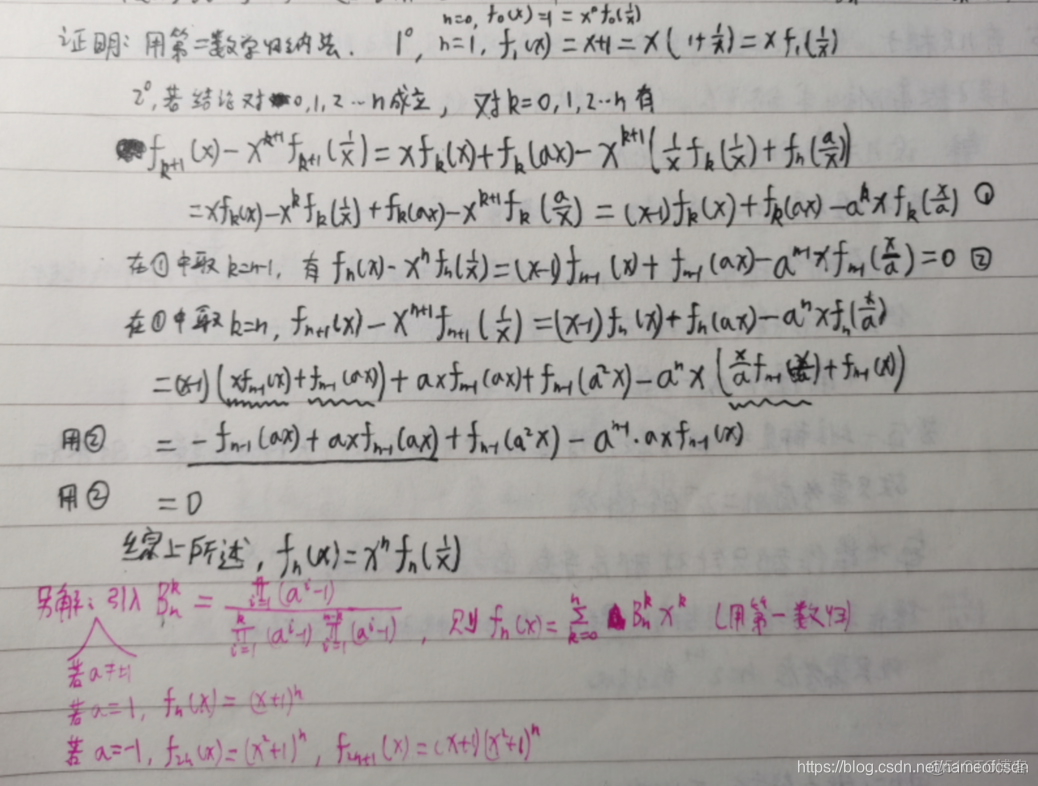 n=0, f₀(x)=1=x⁰f₀(1/x)
证明: 用第二数学归纳法. 1°, n=1, f₁(x)=x+1=x(1+1/x)=xf₁(1/x)
2°, 若结论对0,1,2…n成立, 对k=0,1,2…n有
f_{k+1}(x)-x^{k+1}f_{k+1}(1/x)=xf_k(x)+f_k(ax)-x^{k+1}(1/x f_k(1/x)+f_n(a/x))
=xf_k(x)-x^k f_k(1/x)+f_k(ax)-x^{k+1}f_k(a/x)=(x-1)f_k(x)+f_k(ax)-a^k x f_k(x/a) ①
在①中取k=n-1, 有f_n(x)-x^n f_n(1/x)=(x-1)f_{n-1}(x)+f_{n-1}(ax)-a^{n-1}xf_{n-1}(x/a)=0 ②
在①中取k=n, f_{n+1}(x)-x^{n+1}f_{n+1}(1/x)=(x-1)f_n(x)+f_n(ax)-a^n x f_n(x/a)
=(x-1)(xf_{n-1}(x)+f_{n-1}(ax))+axf_{n-1}(ax)+f_{n-1}(a²x)-a^n x(x/a f_{n-1}(x/a)+f_{n-1}(x))
用② =-f_{n-1}(ax)+axf_{n-1}(ax)+f_{n-1}(a²x)-a^{n-1}·axf_{n-1}(x)
用② =0
综上所述, f_n(x)=x^n f_n(1/x)
另解: 引入 B_n^k = ∏_{i=1}^{n}(a^i-1) / ∏_{i=1}^{k}(a^i-1)∏_{i=1}^{n-k}(a^i-1), 则f_n(x)=∑_{k=0}^{n} B_n^k x^k (用第一数归)
若a≠±1
若a=1, f_n(x)=(x+1)^n
若a=-1, f_{2n}(x)=(x²+1)^n, f_{2n+1}(x)=(x+1)(x²+1)^n
https://blog.csdn.net/nameofcsdn